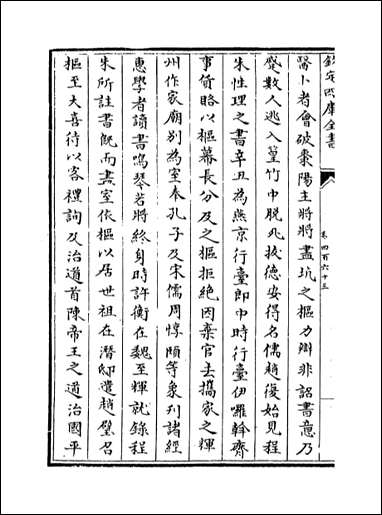 欽定四庫全書
卷四百六十三
醫卜者會破棗陽主將將盡坑之樞力辯非詔書意乃
蹙數人逃入篁竹中脱死拔德安得名儒趙復始見程
朱性理之書辛丑為燕京行臺郎中時行臺伊囉斡齊
事貨賂以樞幕長分及之樞拒絶因棄官去攜家之輝
州作家廟别為室奉孔子及宋儒周惇頤等象刋諸經
惠學者讀書鳴琴若將終身時許衡在魏至輝就錄程
朱所註書既而盡室依樞以居世祖在潛邸遣趙璧召
樞至大喜待以客禮詢及治道首陳帝王之道治國平